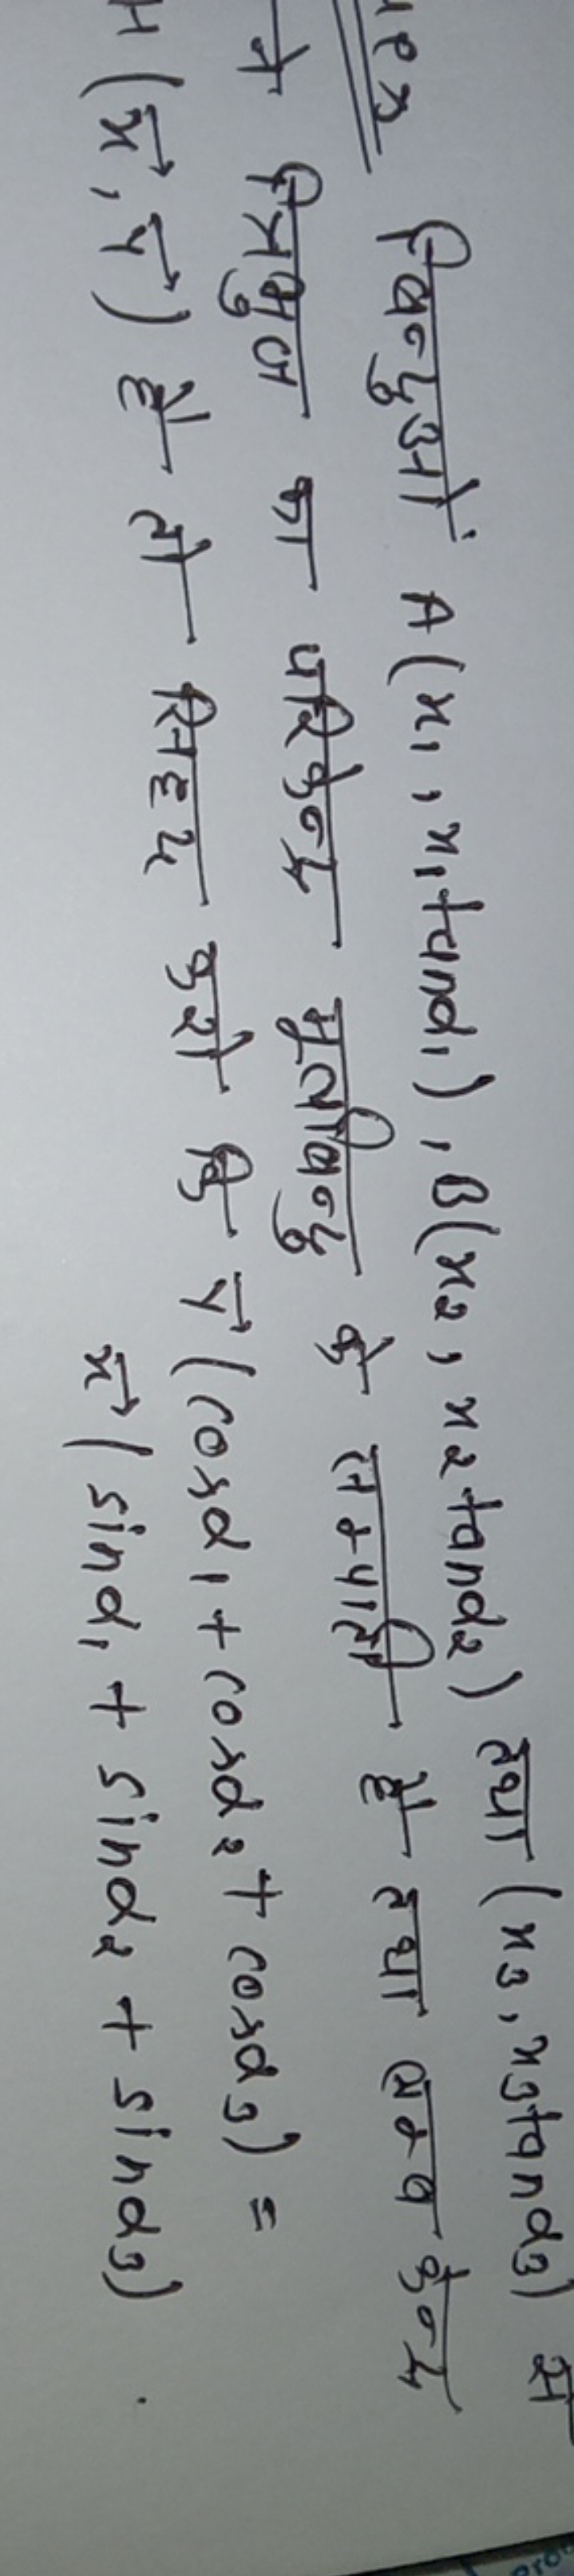 बिन्दुओं A(x₁, x₁tanα₁), B(x₂, x₂tanα₂) तथा (x₃, x₃tanα₃) से
ने त्रिभुज का परिकेन्द्र मूलबिन्दु के सम्पाती है तथा लम्ब केन्द्र
H(x⃗, y⃗) है तो सिद्ध करो कि y⃗(cosα₁ + cosα₂ + cosα₃) =
x⃗(sinα₁ + sinα₂ + sinα₃)